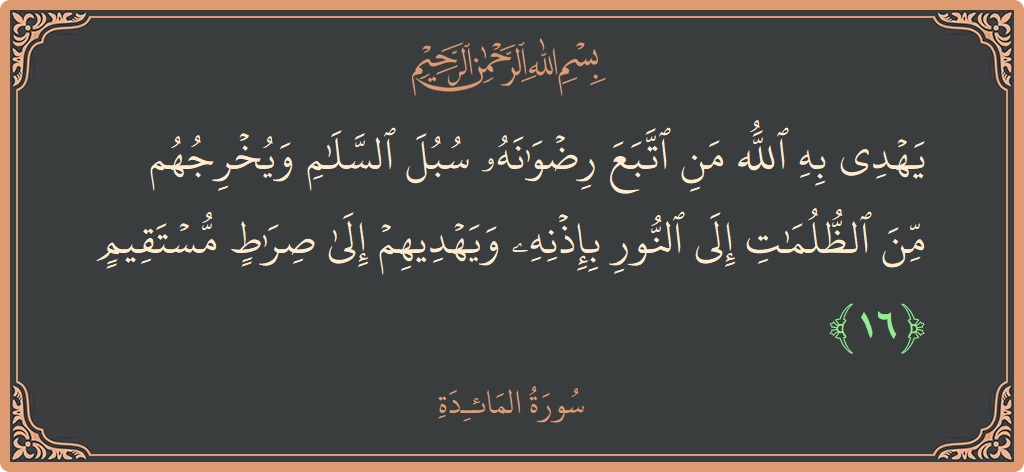 بِسْمِ اللهِ الرَّحْمٰنِ الرَّحِيْمِ
يَهۡدِى بِهِ ٱللَّهُ مَنِ ٱتَّبَعَ رِضۡوَٰنَهُۥ سُبُلَ ٱلسَّلَٰمِ وَيُخۡرِجُهُم
مِّنَ ٱلظُّلُمَٰتِ إِلَى ٱلنُّورِ بِإِذۡنِهِۦ وَيَهۡدِيهِمۡ إِلَىٰ صِرَٰطٍ مُّسۡتَقِيمٍ
﴿١٦﴾
سُورَةُ المَائـِدَةِ